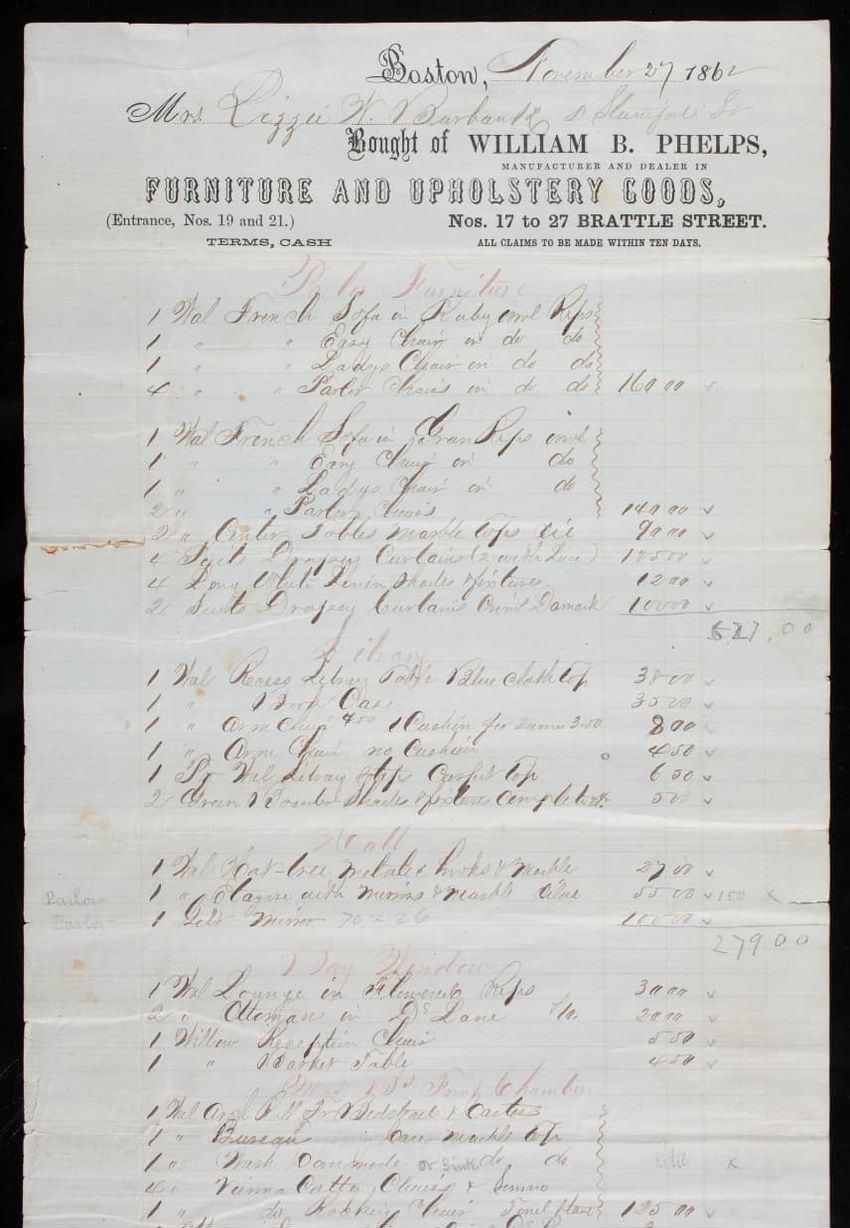 Boston, November 27 1862
Mrs Lizzie W. Burbank 8 Staniford St
Bought of WILLIAM B. PHELPS,
MANUFACTURER AND DEALER IN
FURNITURE AND UPHOLSTERY GOODS,
(Entrance, Nos. 19 and 21.) Nos. 17 to 27 BRATTLE STREET.
TERMS, CASH ALL CLAIMS TO BE MADE WITHIN TEN DAYS.
Parlor Furniture
1 Wal French Sofa in Ruby Reps
1 " " Easy Chair in do do
1 " " Ladys Chair in do do
4 " " Parlor Chairs in do do 160 00
1 Wal French Sofa in Reps
1 " " Easy Chair in do
1 " " Ladys Chair in do
2 " " Parlor Chairs 140 00
2 " Center Tables marble tops 90 00
Suit Drapery Curtains (2 with Lace)
4 Long Linen Shades & fixtures 12 00
2 Suits Drapery Curtains Damask 100 00
627,00
Library
1 Wal Recess Library Table Blue cloth top 38 00
1 " Book Case 35 00
1 " Arm Chair 4 50 1 Cushion for same 3.50 8 00
1 " Arm Chair no Cushion 4 50
1 Pr Wal Library Steps Carpet top 6 50
2 Green Shades & fixtures complete 5 00
Hall
1 Wal Hat-tree metalic hooks & marble 27 00
1 " Etagere with mirrors & marble 55 00 150 x
Parlor
Parlor 1 Gilt Mirror 100 00
279 00
Bay Window
1 Wal Lounge in Reps 30 00
2 " Ottomans in De Lane 20 00
1 Willow Reception Chair 5 50
1 " Basket Table 4 50
Front Chamber
1 Wal Bedstead & Castors
1 " Bureau marble top
1 " Wash Commode or Sink do do x
4 " Vienna Chairs
1 " do Rocking Chair 125 00